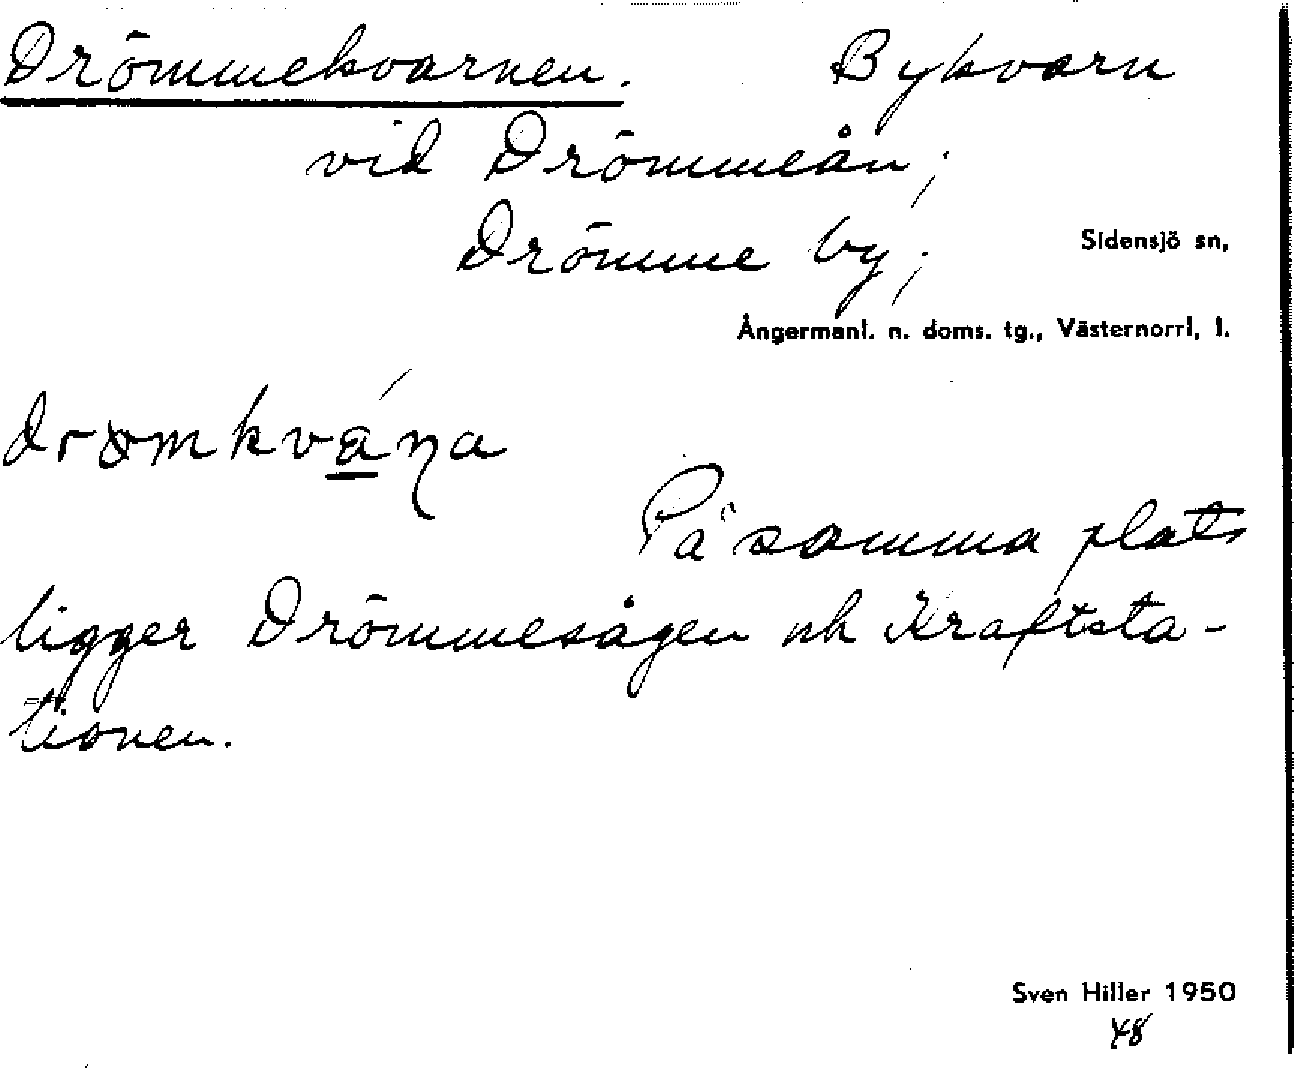 Drömmekvarnen. Bykvarn
vid Drömmeån;
Drömme by; Sidensjö sn,
Ångermanl. n. doms. tg., Västernorrl, l.
På samma plats
ligger Drömmesågen och Kraftsta-
tionen.
Sven Hiller 1950
48